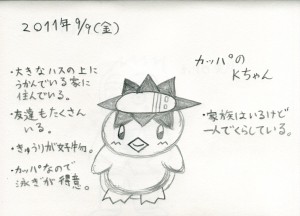 2011年9/9(金)
・大きなハスの上に
うかんでいる家に
住んでいる。
・友達もたくさん
いる。
・きゅうりが好物。
・カッパなので
泳ぎが得意。
カッパの
Kちゃん
・家族はいるけど
一人でくらしている。